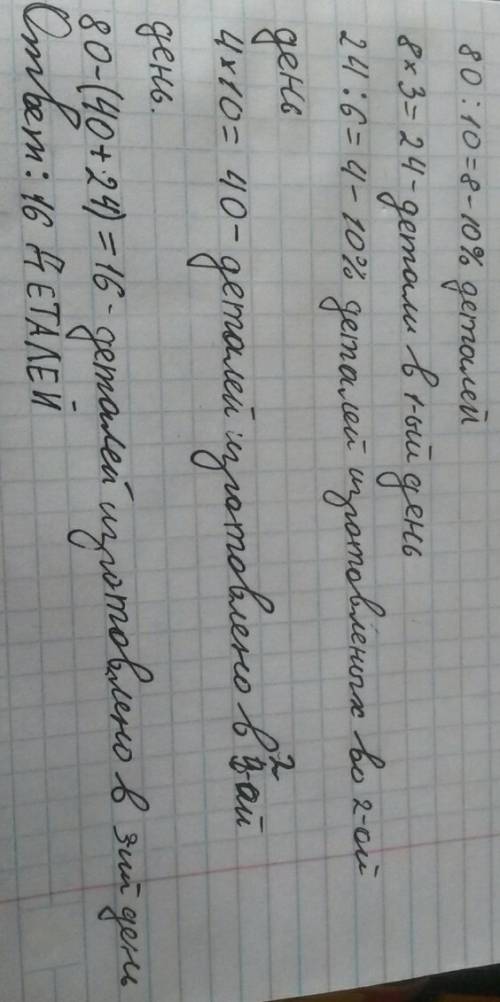 80:10=8-10% деталей
8×3=24-детали в 1-ый день
24:6=4-10% деталей изготовленых во 2-ой
день
4×10=40-деталей изготовлено в 2ой
день.
80-(40+24)=16-деталей изготовлено в 3ий день
Ответ: 16 ДЕТАЛЕЙ